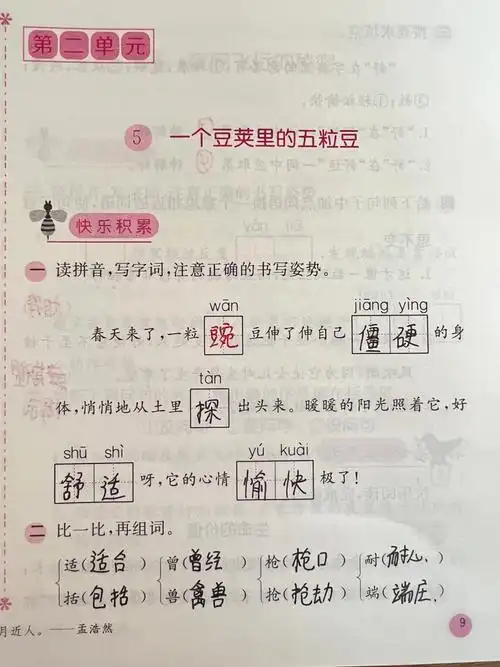 第二单元
5 一个豆荚里的五粒豆
快乐积累
一 读拼音,写字词,注意正确的书写姿势。
wān jiāng yìng
春天来了,一粒豌豆伸了伸自己僵硬的身
tàn
体,悄悄地从土里探出头来。暖暖的阳光照着它,好
shū shì yú kuài
舒适呀,它的心情愉快极了!
二 比一比,再组词。
适(适合) 曾(曾经) 枪(枪口) 耐(耐心)
括(包括) 兽(禽兽) 抢(抢劫) 端(端庄)
月近人。——孟浩然
9